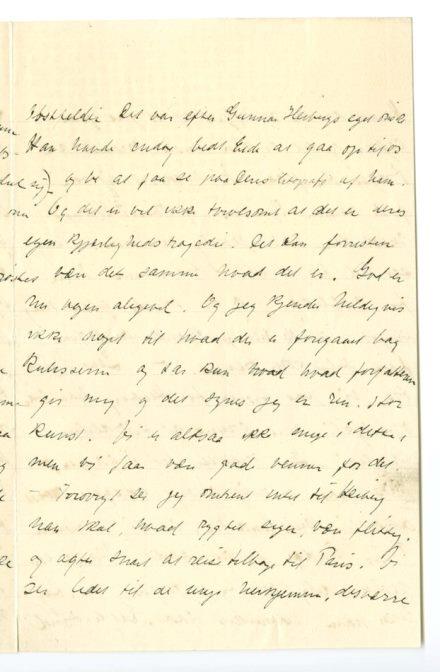 Obstfelder. Det var efter Gunnar Heibergs eget ønske
Han havde endog bedt Eide at gaa op til os
og be at faa se paa Deres litografi af ham.
Og det er vel ikke tvivlsomt at det er deres
egen kjærlighedstragedie. Det kan forresten
være det samme hvad det er. God er
den alligevel. Og jeg kjender heldigvis
ikke noget til hvad der er foregaaet bag
kulisserne og tar kun hvad forfatteren
gir mig og det synes jeg er ren, stor
kunst. Vi er altsaa ikke enige i dette,
men vi faar være gode venner for det.
– Forøvrigt ser jeg omtrent intet til Heiberg
han skal, hvad rygtet siger, være flittig.
og agter snart at reise tilbage til Paris. Vi
ser lidet til de unge herhjemme, desværre